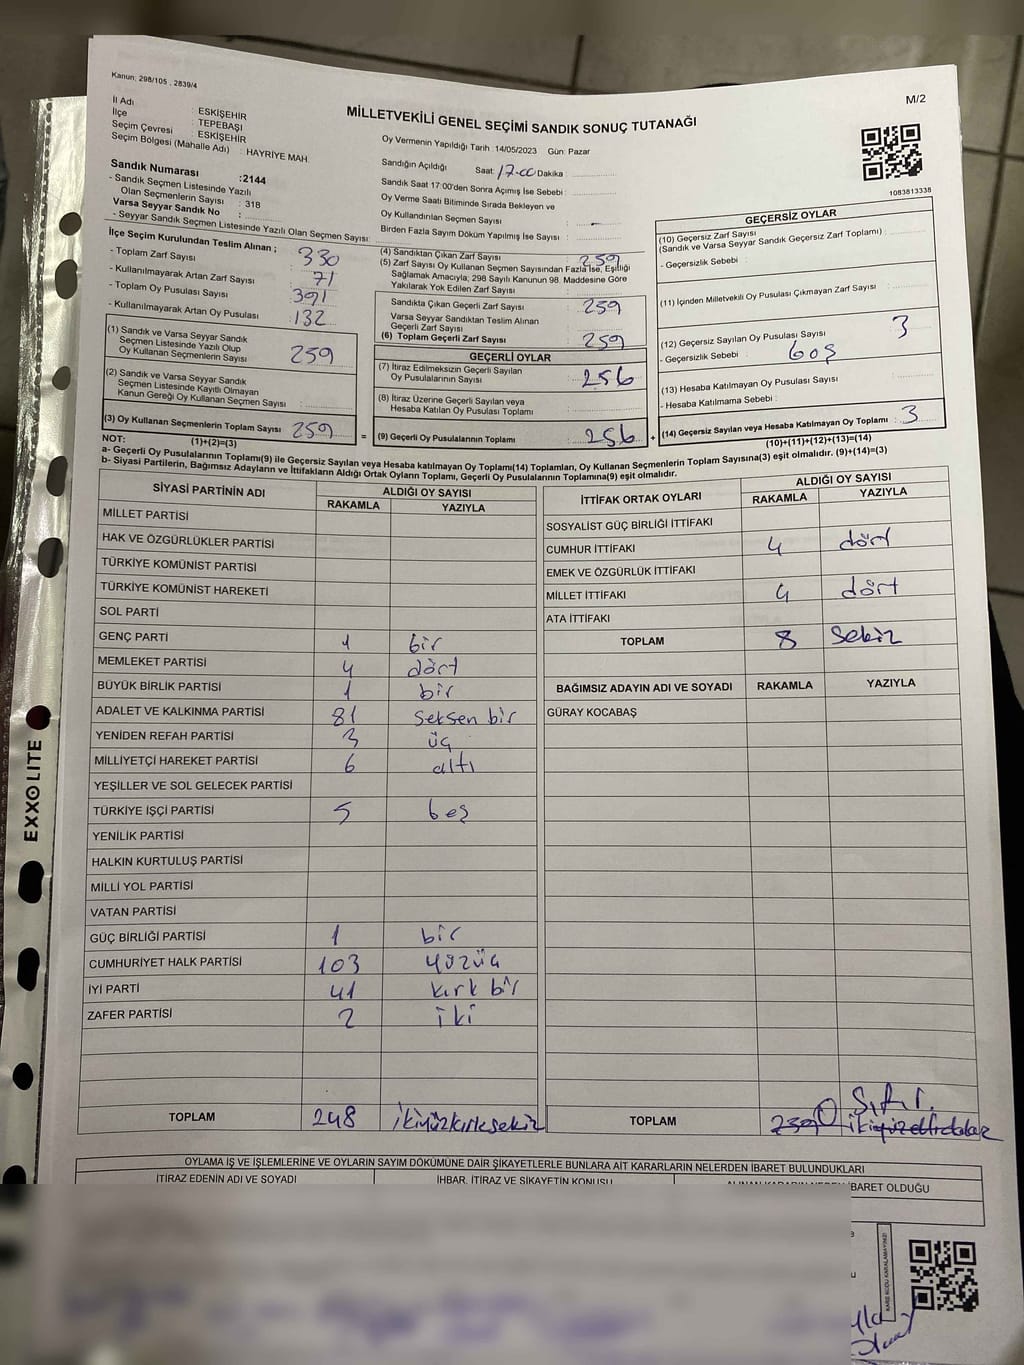 Kanun: 298/105 , 2839/4
M/2
MİLLETVEKİLİ GENEL SEÇİMİ SANDIK SONUÇ TUTANAĞI
İl Adı : ESKİŞEHİR
İlçe : TEPEBAŞI
Seçim Çevresi : ESKİŞEHİR
Seçim Bölgesi (Mahalle Adı) : HAYRİYE MAH.
Sandık Numarası :2144
- Sandık Seçmen Listesinde Yazılı
Olan Seçmenlerin Sayısı : 318
Varsa Seyyar Sandık No :
- Seyyar Sandık Seçmen Listesinde Yazılı Olan Seçmen Sayısı:
Oy Vermenin Yapıldığı Tarih :14/05/2023 Gün: Pazar
Sandığın Açıldığı Saat: 17.00 Dakika
Sandık Saat 17:00'den Sonra Açımış İse Sebebi :
Oy Verme Saati Bitiminde Sırada Bekleyen ve
Oy Kullandırılan Seçmen Sayısı : -
Birden Fazla Sayım Döküm Yapılmış İse Sayısı :
1083813338
İlçe Seçim Kurulundan Teslim Alınan ;
- Toplam Zarf Sayısı : 330
- Kullanılmayarak Artan Zarf Sayısı : 71
- Toplam Oy Pusulası Sayısı : 391
- Kullanılmayarak Artan Oy Pusulası : 132
(1) Sandık ve Varsa Seyyar Sandık
Seçmen Listesinde Yazılı Olup
Oy Kullanan Seçmenlerin Sayısı : 259
(2) Sandık ve Varsa Seyyar Sandık
Seçmen Listesinde Kayıtlı Olmayan
Kanun Gereği Oy Kullanan Seçmen Sayısı :
(3) Oy Kullanan Seçmenlerin Toplam Sayısı : 259
(4) Sandıktan Çıkan Zarf Sayısı : 259
(5) Zarf Sayısı Oy Kullanan Seçmen Sayısından Fazla İse, Eşitliği
Sağlamak Amacıyla; 298 Sayılı Kanunun 98. Maddesine Göre
Yakılarak Yok Edilen Zarf Sayısı :
Sandıkta Çıkan Geçerli Zarf Sayısı : 259
Varsa Seyyar Sandıktan Teslim Alınan
Geçerli Zarf Sayısı :
(6) Toplam Geçerli Zarf Sayısı : 259
GEÇERLİ OYLAR
(7) İtiraz Edilmeksizin Geçerli Sayılan
Oy Pusulalarının Sayısı : 256
(8) İtiraz Üzerine Geçerli Sayılan veya
Hesaba Katılan Oy Pusulası Toplamı :
= (9) Geçerli Oy Pusulalarının Toplamı : 256
GEÇERSİZ OYLAR
(10) Geçersiz Zarf Sayısı
(Sandık ve Varsa Seyyar Sandık Geçersiz Zarf Toplamı) :
- Geçersizlik Sebebi :
(11) İçinden Milletvekili Oy Pusulası Çıkmayan Zarf Sayısı :
(12) Geçersiz Sayılan Oy Pusulası Sayısı : 3
- Geçersizlik Sebebi : boş
(13) Hesaba Katılmayan Oy Pusulası Sayısı :
- Hesaba Katılmama Sebebi :
+ (14) Geçersiz Sayılan veya Hesaba Katılmayan Oy Toplamı : 3
NOT: (1)+(2)=(3)
(10)+(11)+(12)+(13)=(14)
a- Geçerli Oy Pusulalarının Toplamı(9) ile Geçersiz Sayılan veya Hesaba katılmayan Oy Toplamı(14) Toplamları, Oy Kullanan Seçmenlerin Toplam Sayısına(3) eşit olmalıdır. (9)+(14)=(3)
b- Siyasi Partilerin, Bağımsız Adayların ve İttifakların Aldığı Ortak Oyların Toplamı, Geçerli Oy Pusulalarının Toplamına(9) eşit olmalıdır.
SİYASİ PARTİNİN ADI ALDIĞI OY SAYISI
RAKAMLA YAZIYLA
MİLLET PARTİSİ
HAK VE ÖZGÜRLÜKLER PARTİSİ
TÜRKİYE KOMÜNİST PARTİSİ
TÜRKİYE KOMÜNİST HAREKETİ
SOL PARTİ
GENÇ PARTİ 1 bir
MEMLEKET PARTİSİ 4 dört
BÜYÜK BİRLİK PARTİSİ 1 bir
ADALET VE KALKINMA PARTİSİ 81 seksen bir
YENİDEN REFAH PARTİSİ 3 üç
MİLLİYETÇİ HAREKET PARTİSİ 6 altı
YEŞİLLER VE SOL GELECEK PARTİSİ
TÜRKİYE İŞÇİ PARTİSİ 5 beş
YENİLİK PARTİSİ
HALKIN KURTULUŞ PARTİSİ
MİLLİ YOL PARTİSİ
VATAN PARTİSİ
GÜÇ BİRLİĞİ PARTİSİ 1 bir
CUMHURİYET HALK PARTİSİ 103 yüzüç
İYİ PARTİ 41 kırk bir
ZAFER PARTİSİ 2 iki
TOPLAM 248 ikiyüzkırksekiz
İTTİFAK ORTAK OYLARI ALDIĞI OY SAYISI
RAKAMLA YAZIYLA
SOSYALİST GÜÇ BİRLİĞİ İTTİFAKI
CUMHUR İTTİFAKI 4 dört
EMEK VE ÖZGÜRLÜK İTTİFAKI
MİLLET İTTİFAKI 4 dört
ATA İTTİFAKI
TOPLAM 8 sekiz
BAĞIMSIZ ADAYIN ADI VE SOYADI RAKAMLA YAZIYLA
GÜRAY KOCABAŞ
TOPLAM 259 0 Sıfır.
OYLAMA İŞ VE İŞLEMLERİNE VE OYLARIN SAYIM DÖKÜMÜNE DAİR ŞİKAYETLERLE BUNLARA AİT KARARLARIN NELERDEN İBARET BULUNDUKLARI
İTİRAZ EDENİN ADI VE SOYADI İHBAR, İTİRAZ VE ŞİKAYETİN KONUSU ALINAN KARARIN NEDEN İBARET OLDUĞU
KARE KODU KARALAMAYINIZ!
EXXOLITE